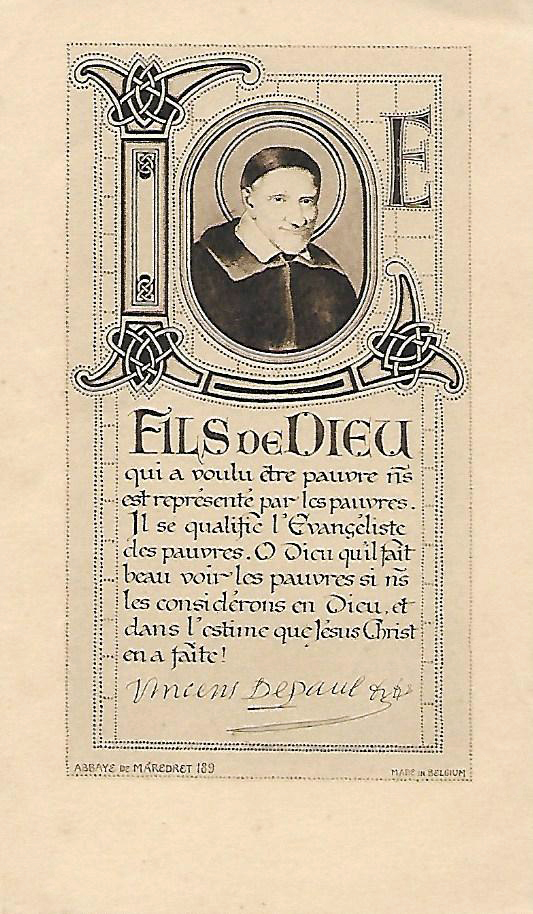 LE
FILS DE DIEU
qui a voulu être pauvre ñs
est représenté par les pauvres.
Il se qualifie l'Évangéliste
des pauvres. O Dieu qu'il fait
beau voir les pauvres si ñs
les considérons en Dieu, et
dans l'estime que Jésus Christ
en a faite!
Vincent Depaul
ABBAYE DE MAREDRET 189
MADE IN BELGIUM